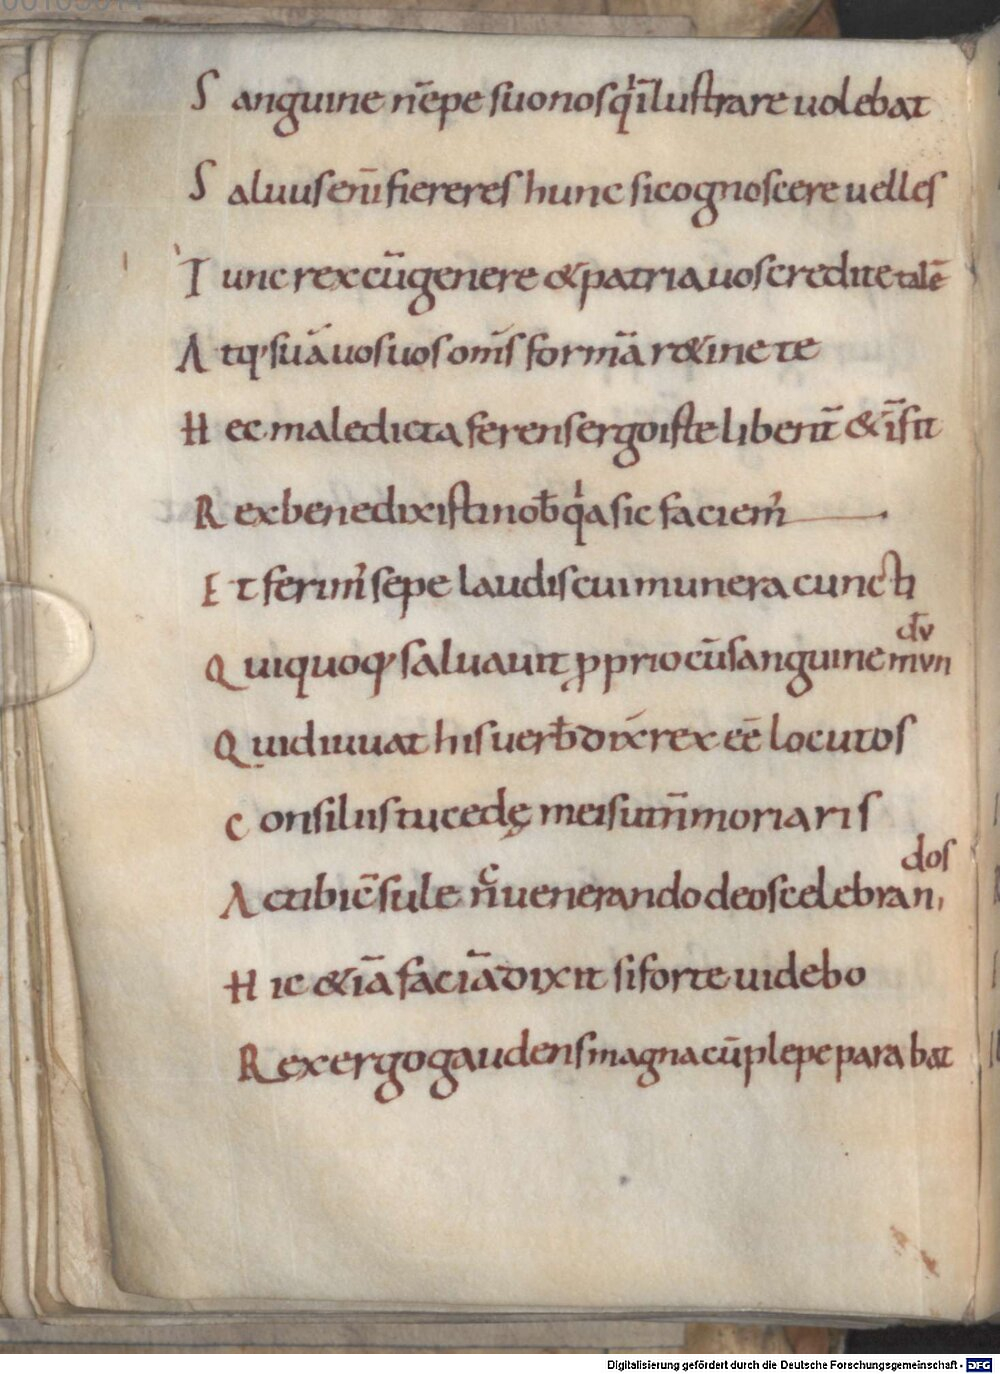 S anguine nēpe suo nos qͥ īlustrare uolebat
S aluus enī fieres hunc si cognoscere uelles
T unc rex cū genere & patria uos credite talē
A tq; suā uos uos om̄s formā r&inete
H ec maledicta ferens ergo iste libent̄ & īfit
R ex benedixisti nob̄ qͥa sic faciem̄
E t ferim̄ sepe laudis cui munera cuncti
dv̄
Q ui quoq; saluauit ꝓprio cū sanguine mvn
Q uid iuuat his uerb̄ dix̄ rex eē locutos
C onsiliis tu cedę meis ut n̄ moriaris
dos
A ctib; c̄sule nc̄ uenerando deos celebran,
H ic & iā faciā dixit si forte uidebo
R ex ergo gaudens magna cū plepe parabat
Digitalisierung gefördert durch die Deutsche Forschungsgemeinschaft - DFG